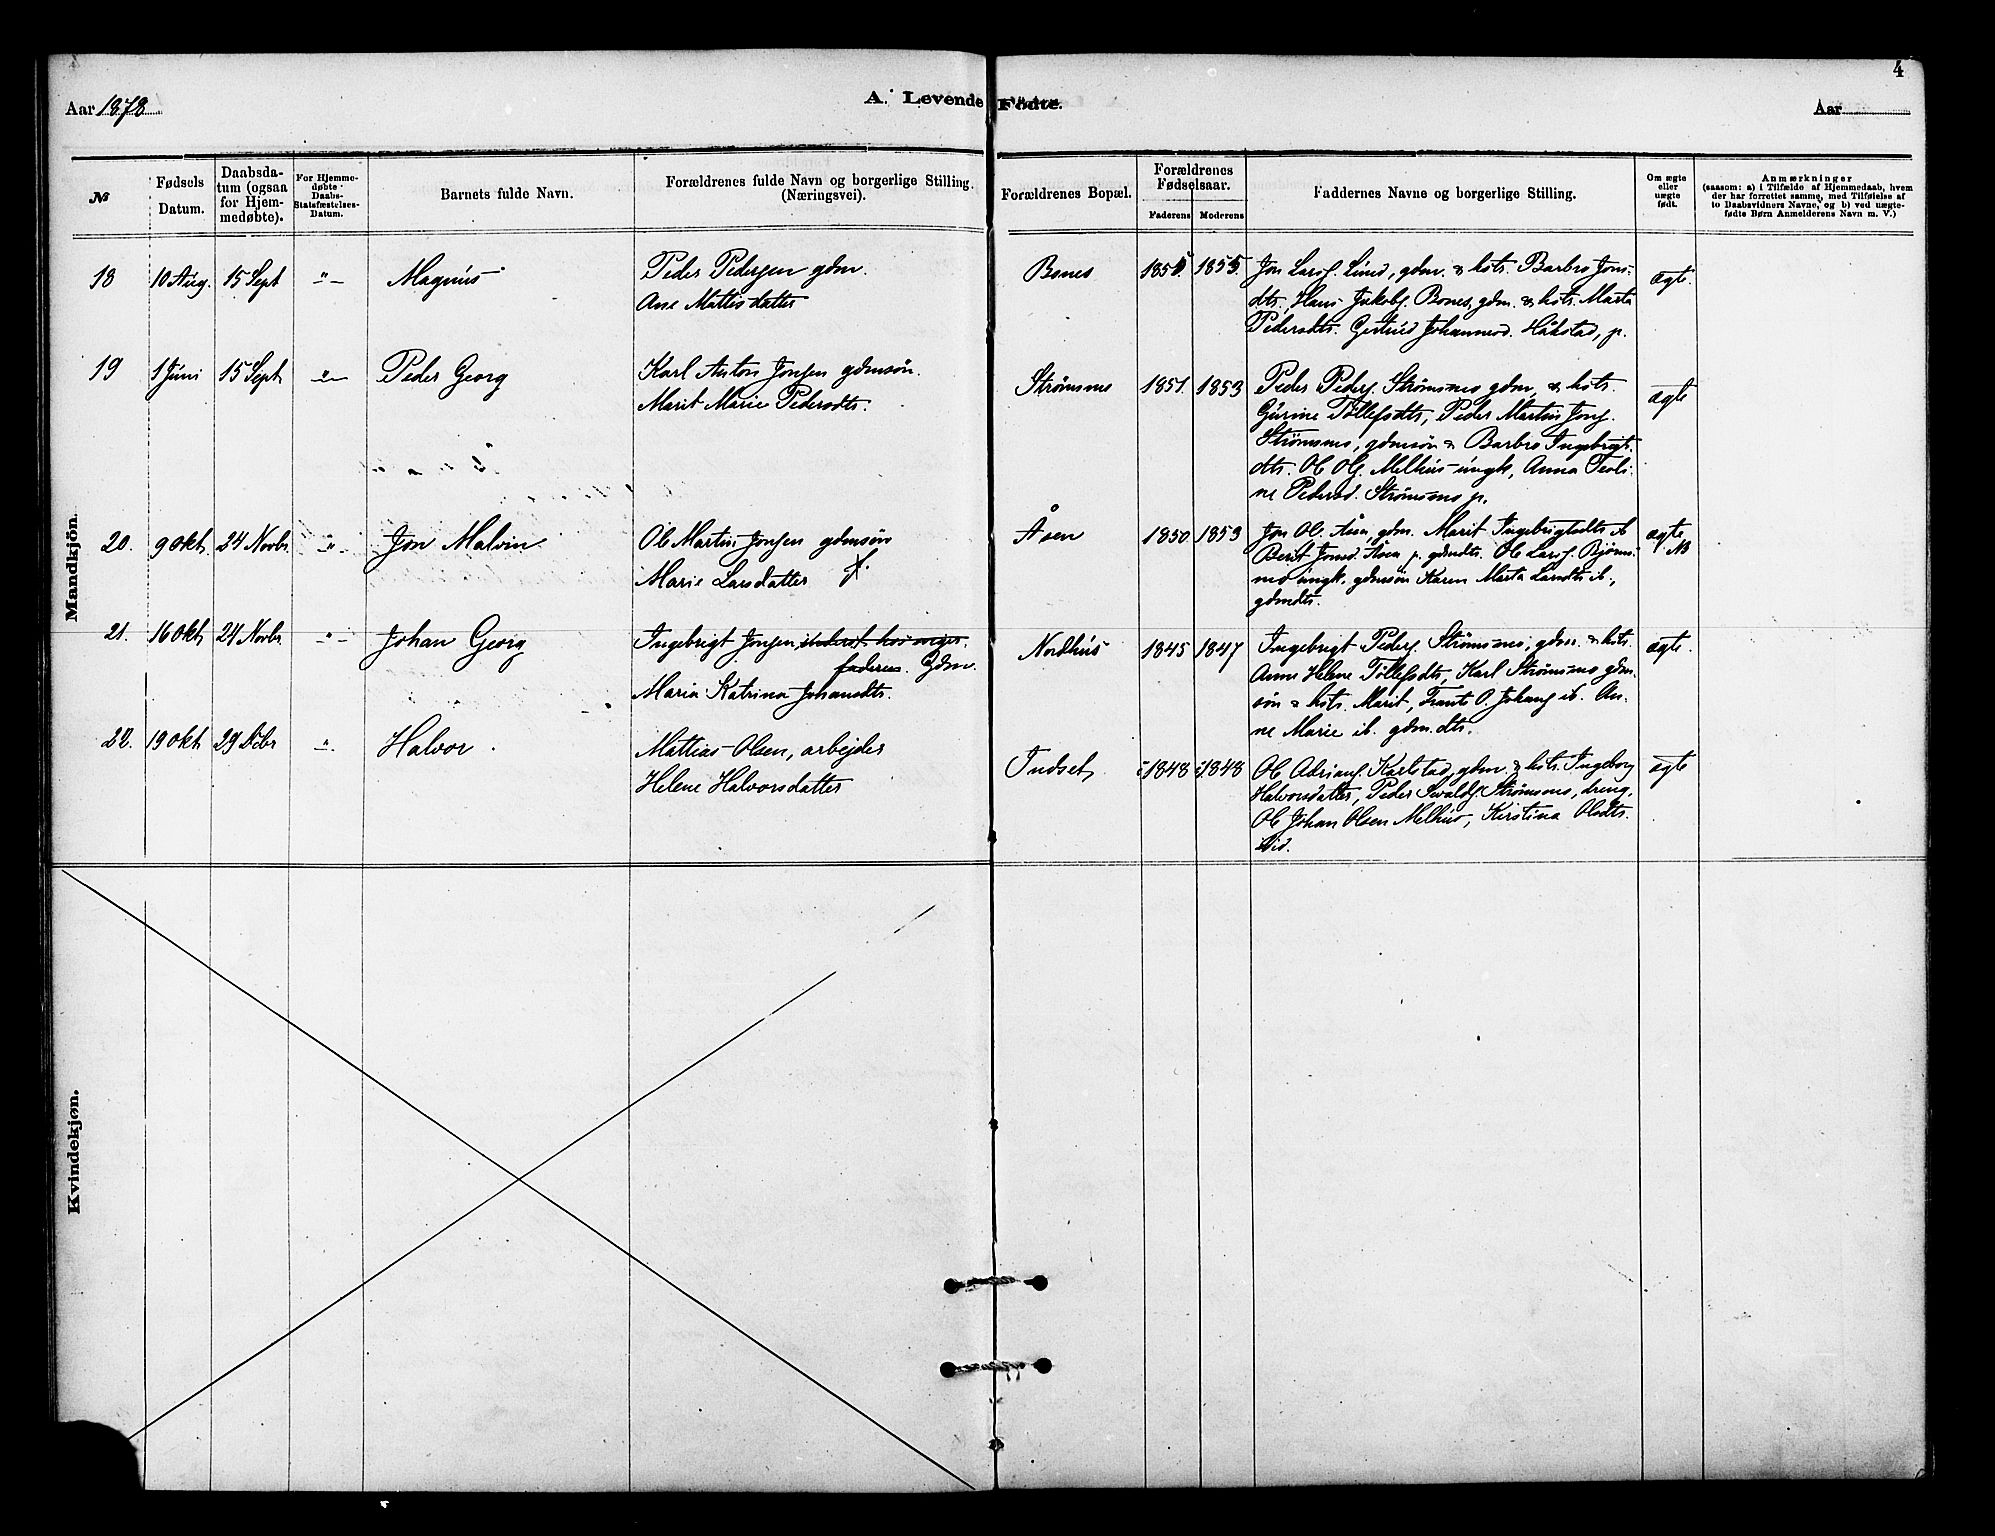 4
Aar 1878
A. Levende Fødte.
Aar
№
Fødsels Datum.
Daabsda-
tum (ogsaa
for Hjem-
medøbte).
For Hjemme-
døbte
Daabs-
Stadfæstelses-
Datum.
Barnets fulde Navn.
Forældrenes fulde Navn og borgerlige Stilling.
(Næringsvei).
Forældrenes Bopæl.
Forældrenes
Fødselsaar.
Faderens Moderens
Faddernes Navne og borgerlige Stilling.
Om ægte
eller
uægte
født.
Anmærkninger
(saasom: a) i Tilfælde af Hjemmedaab, hvem
der har forrettet samme, med Tilføielse af
to Daabsvidners Navne, og b) ved uægte-
fødte Børn Anmelderens Navn m. V.)
Mandkjön.
18 10 Aug. 15 Sept -"- Magnus
Peder Pedersen gdm.
Ane Mattisdatter
Bones 1855 1855.
Jon Larss. Lund, gdm. & hstr. Barbro Jons-
dtr, Hans Jakobs. Bones, gdm. & hstr. Marta
Pedersdtr. Gertrud Johannesd. Håkstad, p.
ægte.
19 1 Juni 15 Sept -"- Peder Georg
Karl Anton Jonsen gdmsøn.
Marit Marie Pedersdtr.
Strømsmo 1851. 1853
Peder Peders. Strømsmo gdm, & hstr.
Gurine Tollefsdtr, Peder Martin Jons.
Strømsmo, gdmsøn & Barbro Ingebrigts-
dtr. Ol Ols. Melhus ungk, Anna Teoli-
ne Pedersd. Strømsmo p.
ægte
20. 9 Okt. 24 Novbr -"- Jon Malvin
Ol Martin Jonsen gdmsøn
Marie Larsdatter
Åsen 1850 1853
Jon Ols. Åsen, gdm. Marit Ingebrigtsdtr ib
Berit Jonsd. Åsen p. gdmdtr. Ol Larss. Bjørns-
mo ungk. gdmsøn Karen Marta Larsdtr ib.,
gdmdtr.
ægte
NB
21. 16 Okt 24 Novbr -"- Johan Georg
Ingebrigt Jonsen, inderst hos
faderen. Gdm.
Maria Katrina Johansdtr.
Nordhus 1845 1847
Ingebrigt Peders. Strømsmo, gdm. & hstr.
Anne Helene Tollefsdtr, Karl Strømsmo gdm-
søn & hstr. Marit, Frants O. Johans ib. An-
ne Marie ib. gdm.dtr.
ægte.
22. 19 Okt 29 Dcbr -"- Halvor
Mattias Olsen, arbejder
Helene Halvorsdatter
Indset 1848 1848
Ol Adrians. Karlstad, gdm. & hstr. Ingeborg
Halvorsdatter, Peder Sivalds. Strømsmo, dreng,
Ol Johan Olsen Melhus, Kirstina Olsdtr.
ibid.
ægte
Kvindekjøn.